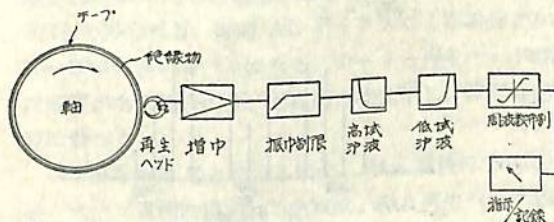 テープ
絶縁物
軸
再生
ヘッド
増巾
振巾制限
高域
沪波
低域
沪波
周波数弁別
指示/
記録